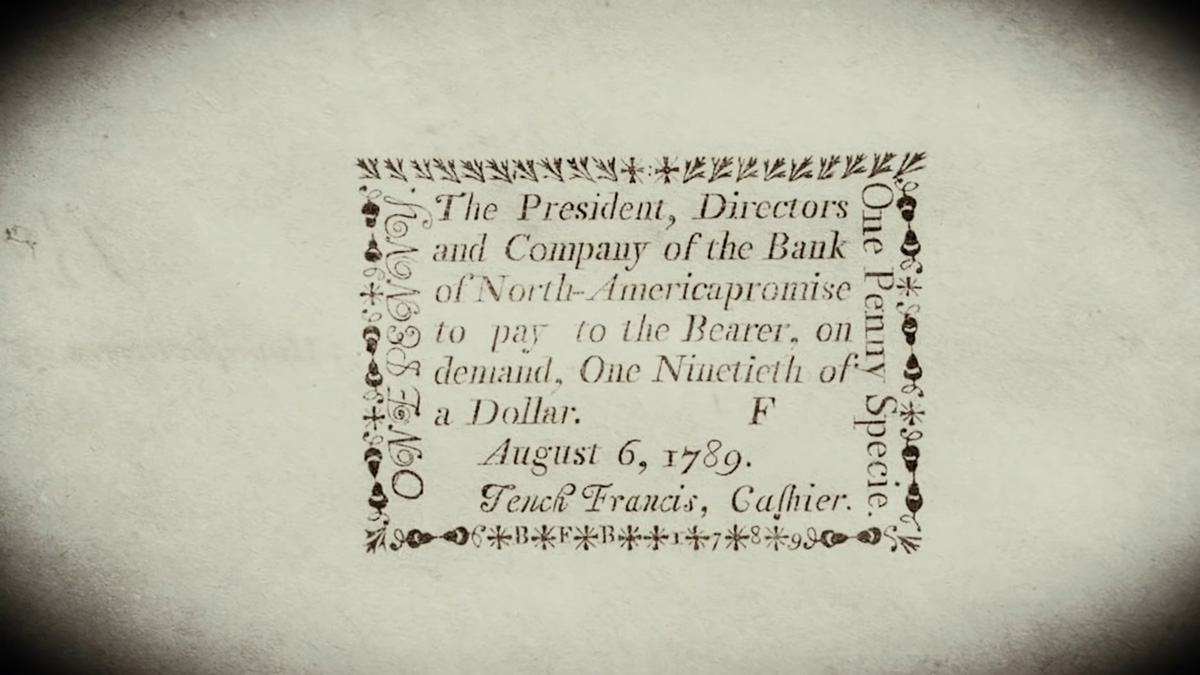 The President, Directors
and Company of the Bank
of North-Americapromise
to pay to the Bearer, on
demand, One Ninetieth of
a Dollar. F
August 6, 1789.
Tench Francis, Caſhier.
ONE PENNY
One Penny Specie.
B F B 1 7 8 9